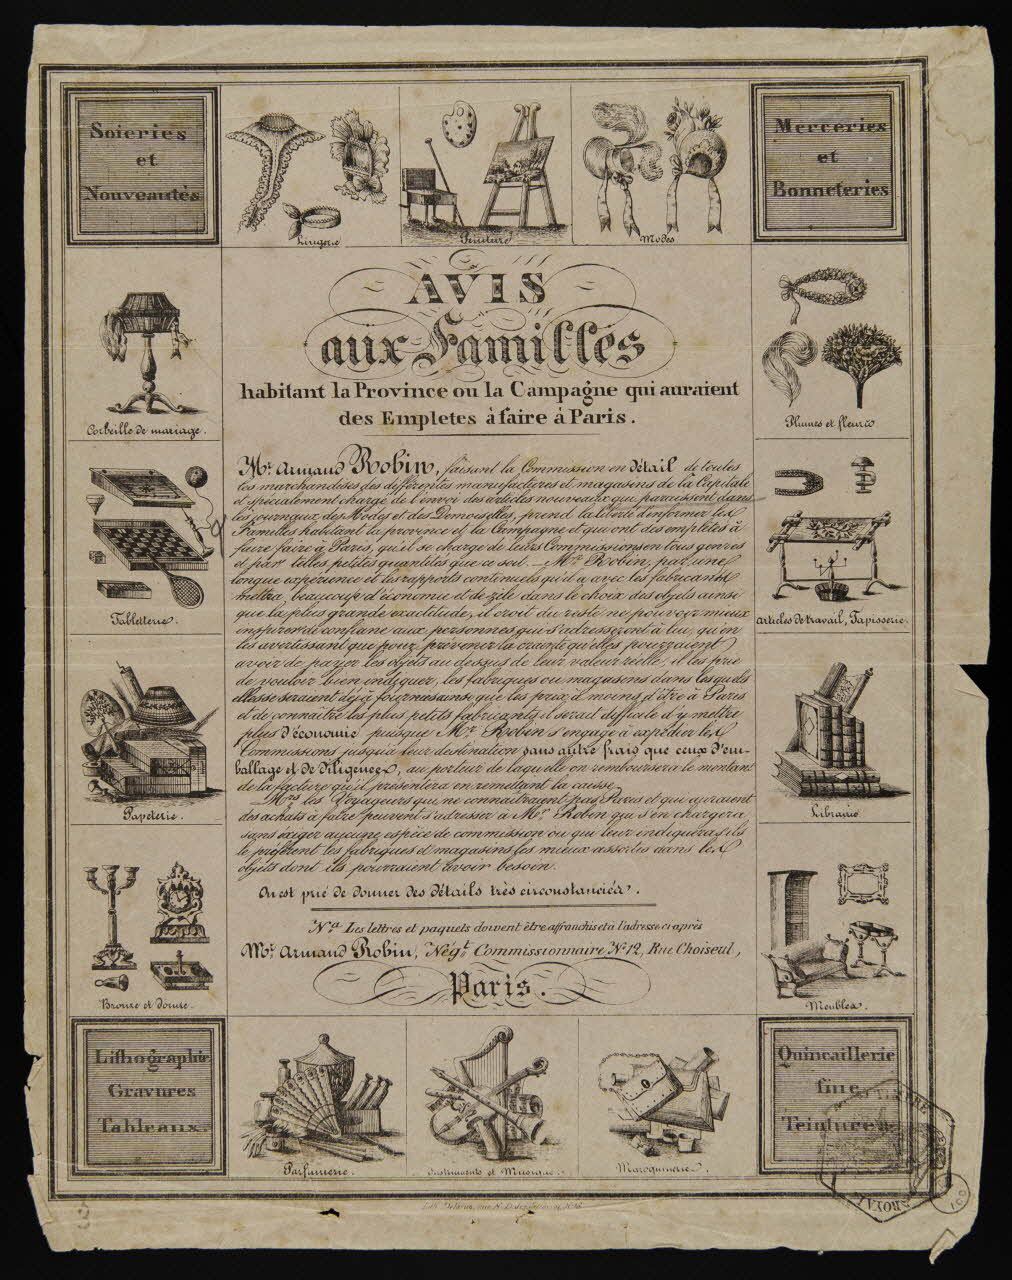 Soieries
et
Nouveautés
Lingerie
Peinture
Modes
Merceries
et
Bonneteries
AVIS
aux Familles
habitant la Province ou la Campagne qui auraient
des Empletes à faire à Paris.
Corbeille de mariage.
Tabletterie.
Papeterie.
Bronze et dorure.
Mr. Armand Robin, faisant la Commission en détail de toutes
les marchandises des différentes manufactures et magasins de la Capitale
et spécialement chargé de l'envoi des articles nouveaux que paraissent dans
les journaux des Modes et des Demoiselles, prend la liberté d'informer les
Familles habitant la province et la Campagne et qui ont des emplètes à
faire faire à Paris, qu'il se charge de leurs Commissions en tous genres
et par telles petites quantités que ce soit. Mr. Robin, par une
longue expérience et les rapports continuels qu'il a avec les fabricants
mettra beaucoup d'économie et de zèle dans le choix des objets ainsi
que la plus grande exactitude, il croit du reste ne pouvoir mieux
inspirer de confiance aux personnes qui s'adresseront à lui, qu'en
les avertissant que pour prévenir la crainte qu'elles pourraient
avoir de payer les objets au dessus de leur valeur réelle, il les prie
de vouloir bien indiquer, les fabriques ou magasins dans lesquels
elles se seraient déjà fournies ainsi que les prix, à moins d'être à Paris
et de connaître les plus petits fabricants il serait difficile d'y mettre
plus d'économie puisque Mr. Robin s'engage à expédier les
Commissions jusqu'à leur destination sans autre frais que ceux d'em-
ballage et de diligences, au porteur de laquelle on remboursera le montant
de la facture qu'il présentera en remettant la caisse.
Mrs. les Voyageurs qui ne connaîtraient pas Paris et qui auraient
des achats à faire peuvent s'adresser à Mr. Robin qui s'en chargera
sans exiger aucune espèce de commission ou qui leur indiquera s'ils
le préfèrent les fabriques et magasins les mieux assortis dans les
objets dont ils pourraient avoir besoin.
On est prié de donner des détails très circonstanciés.
Na. Les lettres et paquets doivent être affranchis et à l'adresse ci après
Mr. Armand Robin, Négt. Commissionnaire No. 12, Rue Choiseul,
Paris.
Plumes et fleurs
articles de travail, Tapisserie.
Librairie
Meubles.
Lithographie
Gravures
Tableaux.
Parfumerie.
Instruments et Musique.
Maroquinerie.
Quincaillerie
fine
Teinture
ROYAL